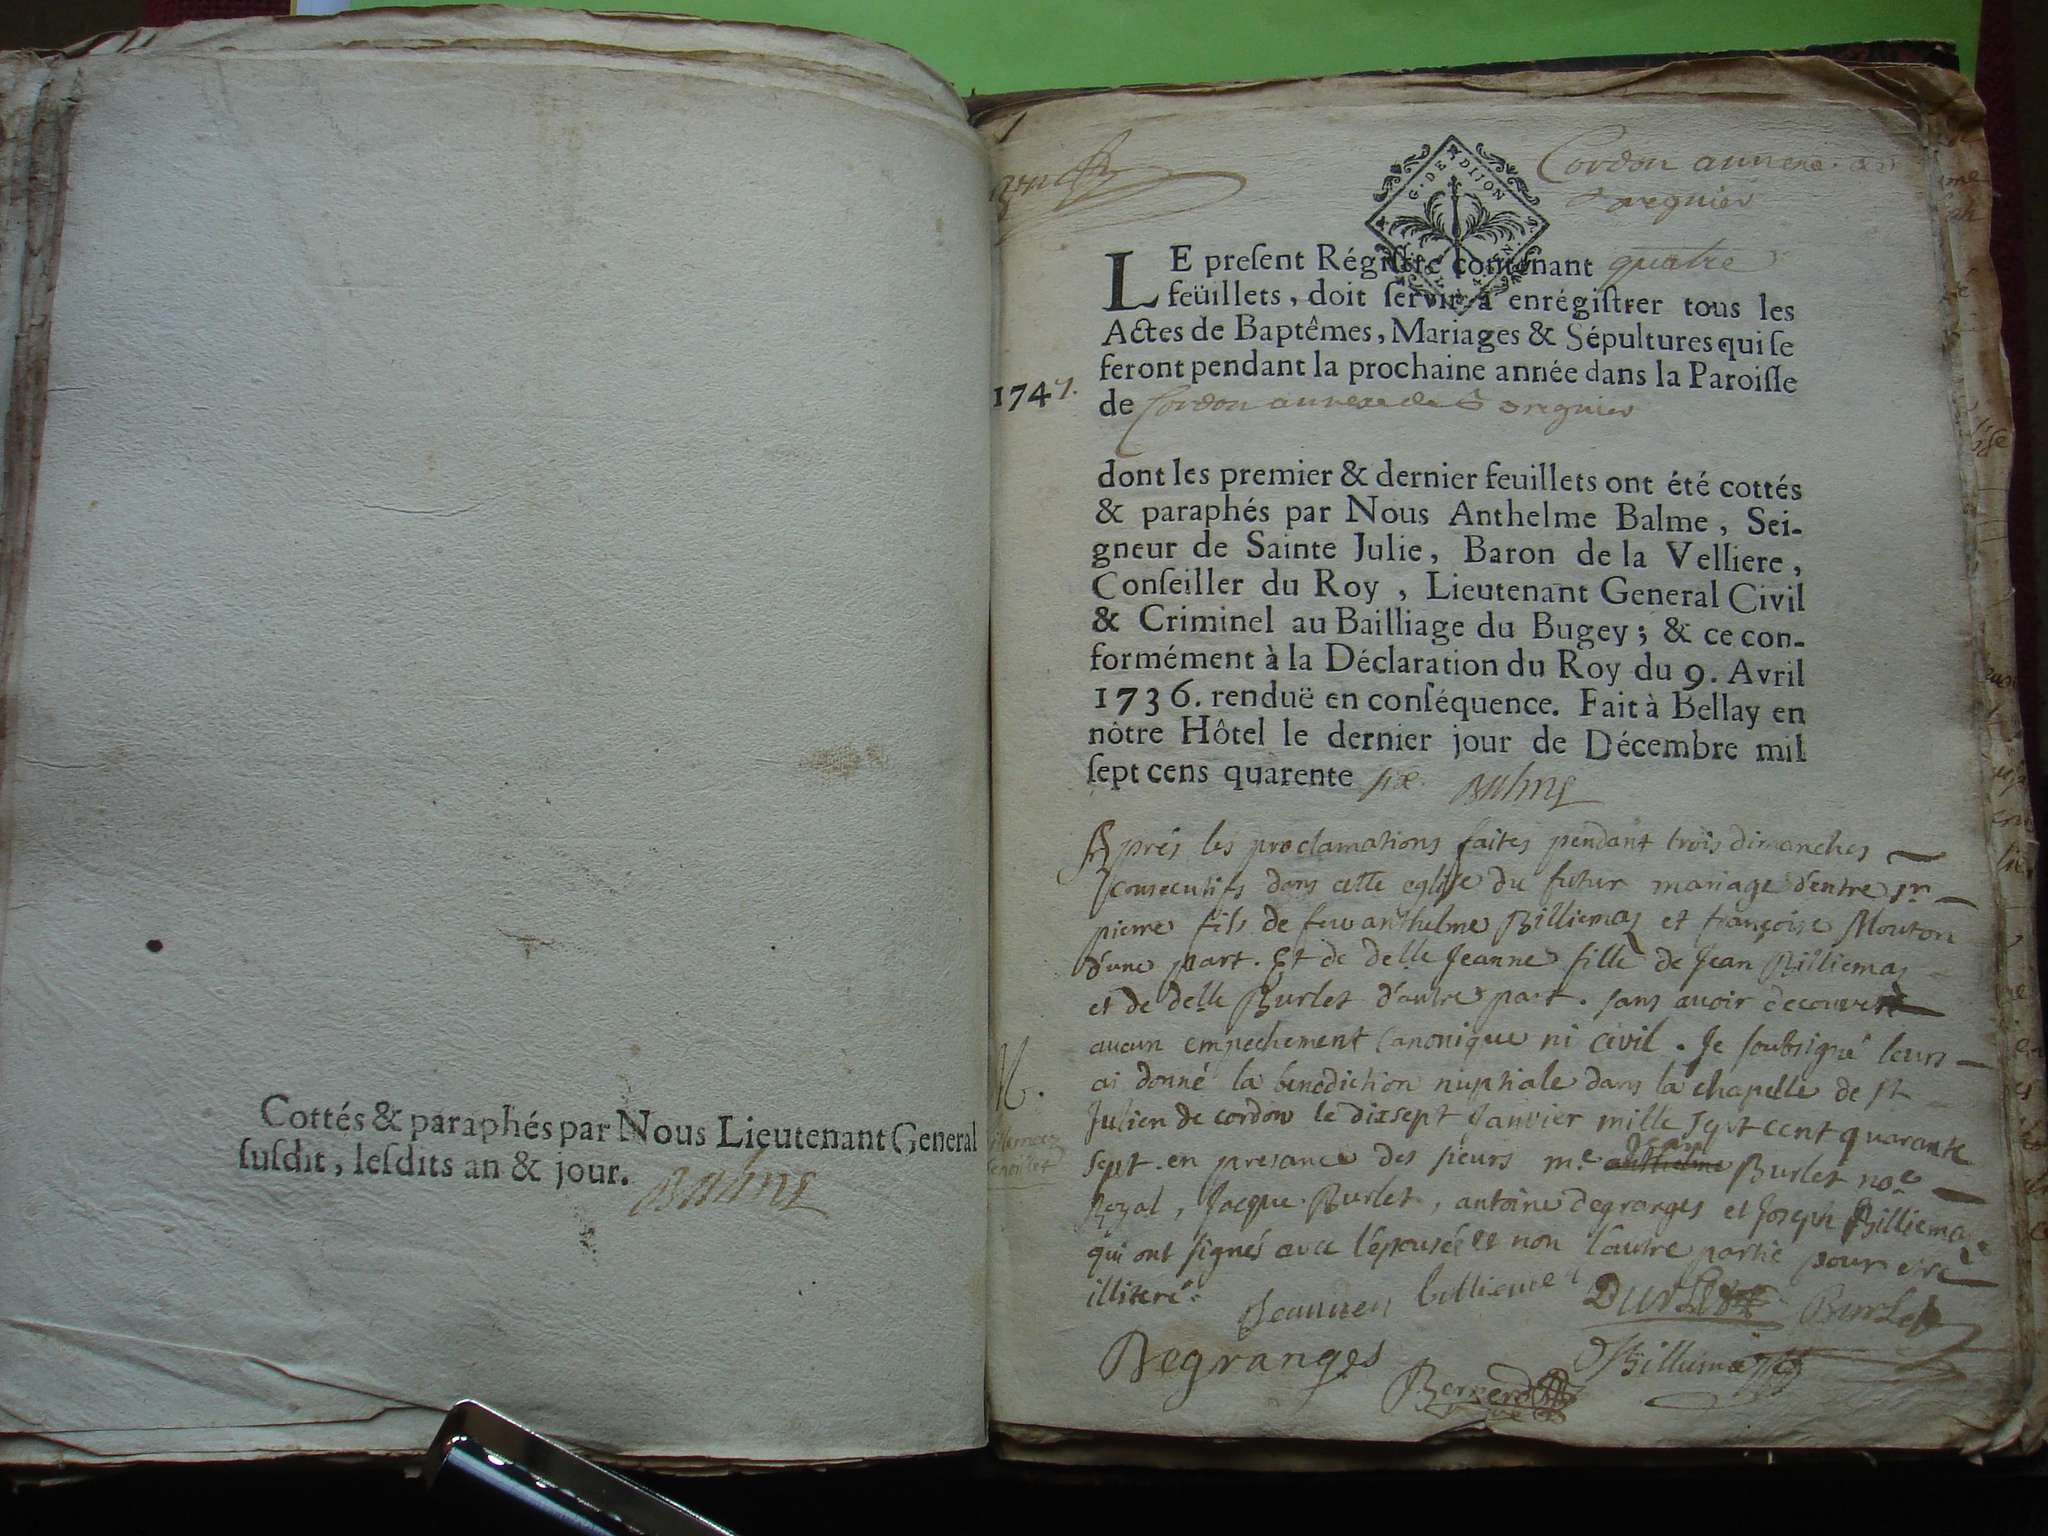 Cottés & paraphés par Nous Lieutenant General
susdit, lesdits an & jour. Balme
G. DE DIJON
Cordon annexe
LE present Régistre contenant quatre
feüillets, doit servir à enrégistrer tous les
Actes de Baptêmes, Mariages & Sépultures qui se
feront pendant la prochaine année dans la Paroisse
1747.
de Cordon annexe de
dont les premier & dernier feuillets ont été cottés
& paraphés par Nous Anthelme Balme, Sei-
gneur de Sainte Julie, Baron de la Velliere,
Conseiller du Roy, Lieutenant General Civil
& Criminel au Bailliage du Bugey; & ce con-
formément à la Déclaration du Roy du 9. Avril
1736. renduë en conséquence. Fait à Bellay en
nôtre Hôtel le dernier jour de Décembre mil
sept cens quarente six Balme
Aprés les proclamations faites pendant trois dimanches
consecutifs dans cette eglise du futur mariage d'entre sr
pierre fils de feu anthelme Billiemaz et françoise Mouton
d'une part. Et de delle Jeanne fille de Jean Billiemaz
et de delle Burlet d'autre part. sans avoir decouvert
aucun empechement canonique ni civil. Je soubsigné leurs
ai donné la benediction nuptiale dans la chapelle de st
Julien de cordon le dixsept Janvier mille sept cent quarante
sept. en presance des sieurs me anthelme Jean Burlet noe
Royal, Jacque Burlet, antoine degranges et Joseph Billiemaz
qui ont signés avec l'epousée et non l'autre partie pour etre
illiteré.
M.
Burlet
Degranges
Billiemaz